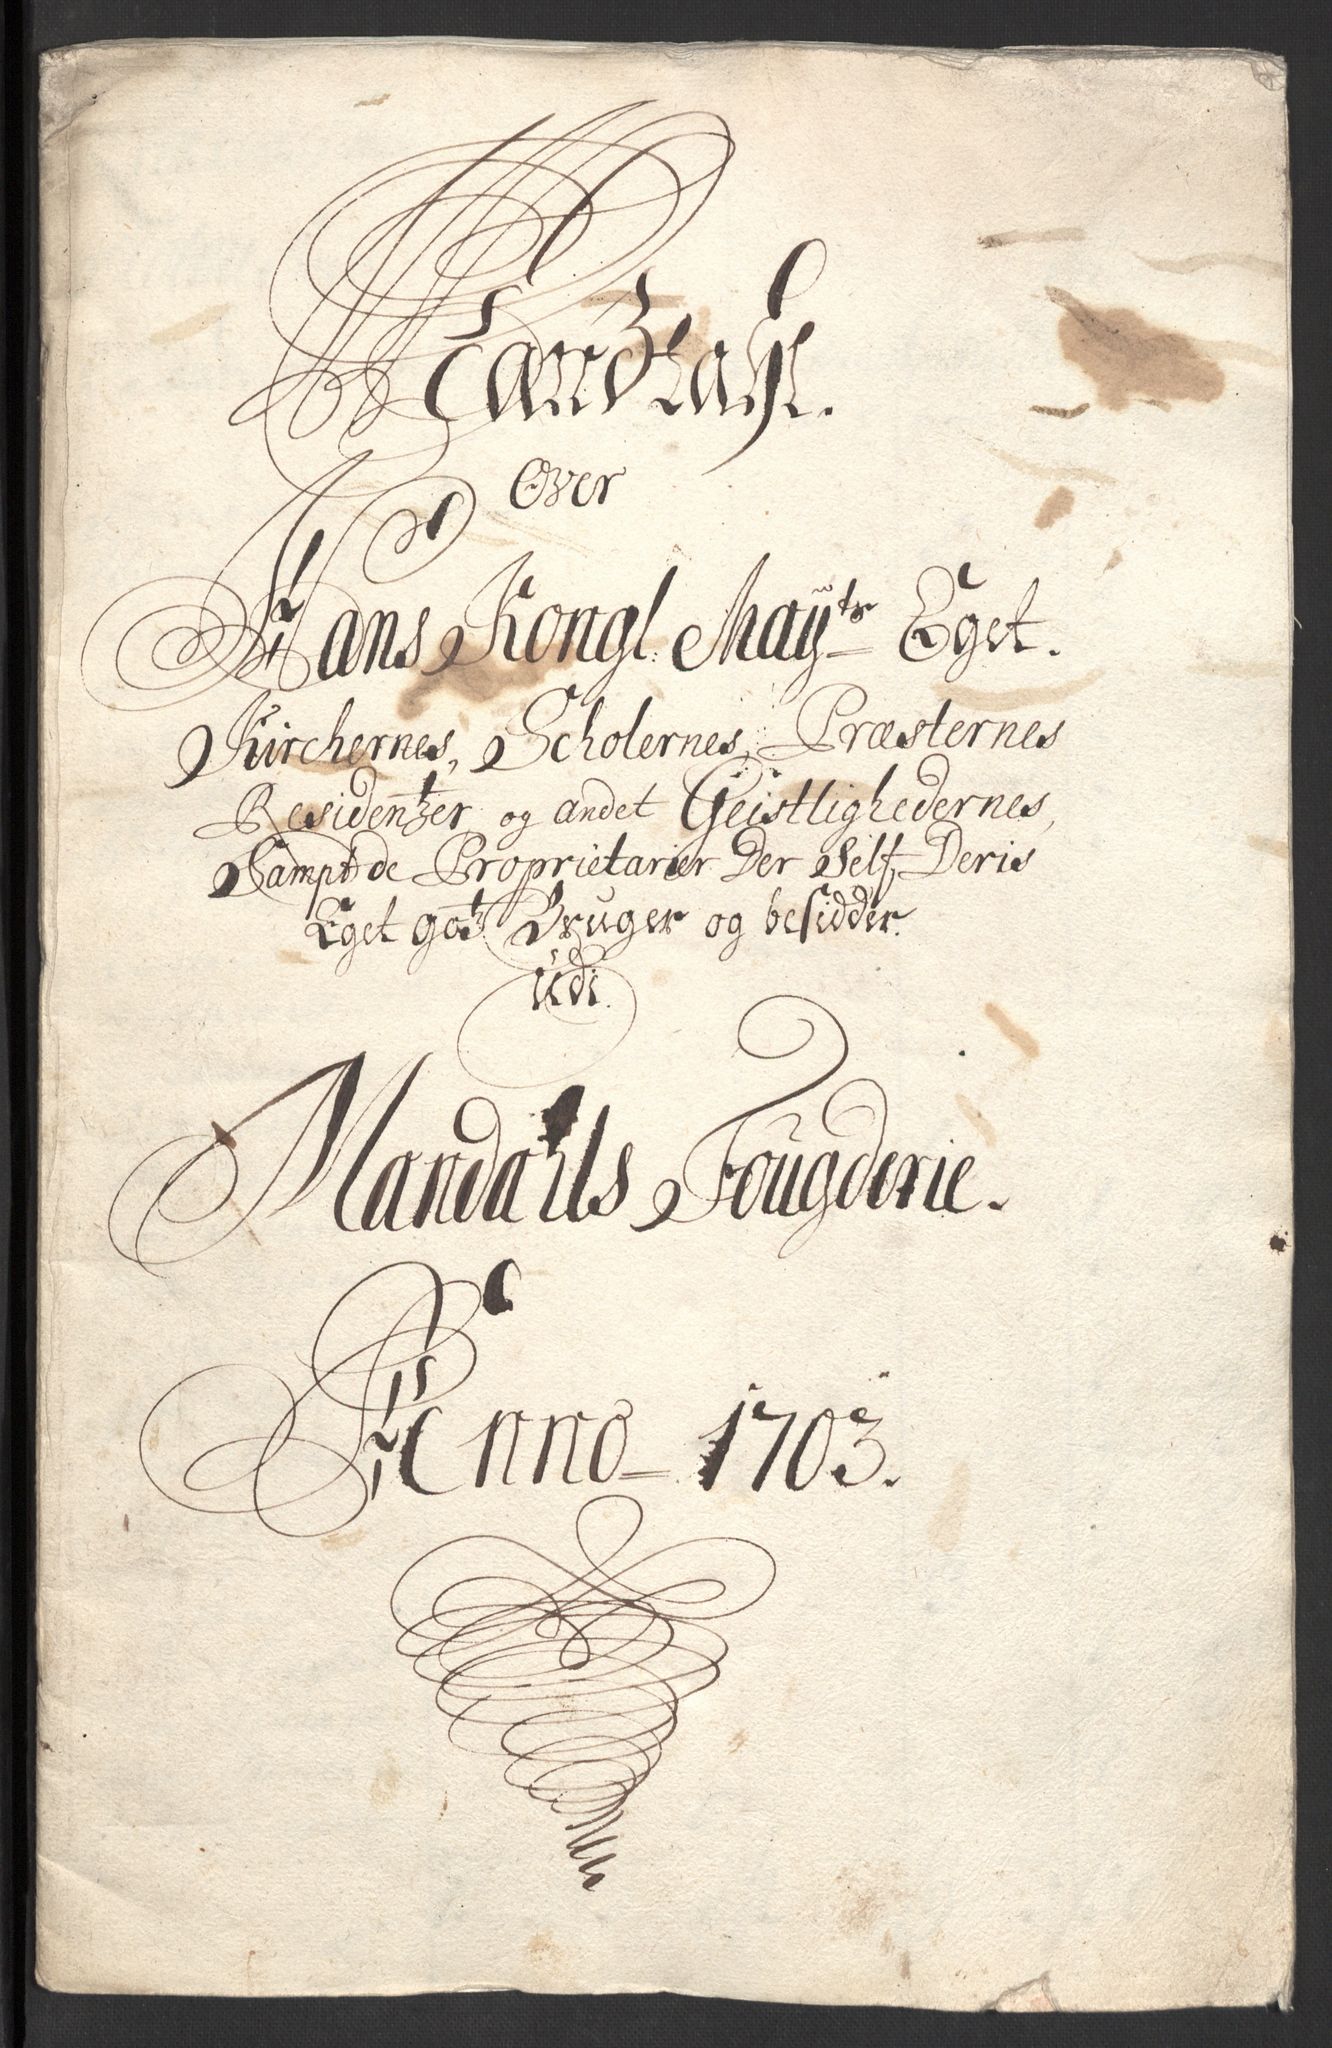 Landtaxt.
Over
Hans Kongl: Mayts Eget.
Kirchernes, Scholernes, Præsternes
Residentzer og andet Geistlighedernes,
Sampt de Proprietarier Der Self, Deris
Eget gotz Bruger og besidder.
Udi.
Mandahls Fougderie.
Anno 1703.